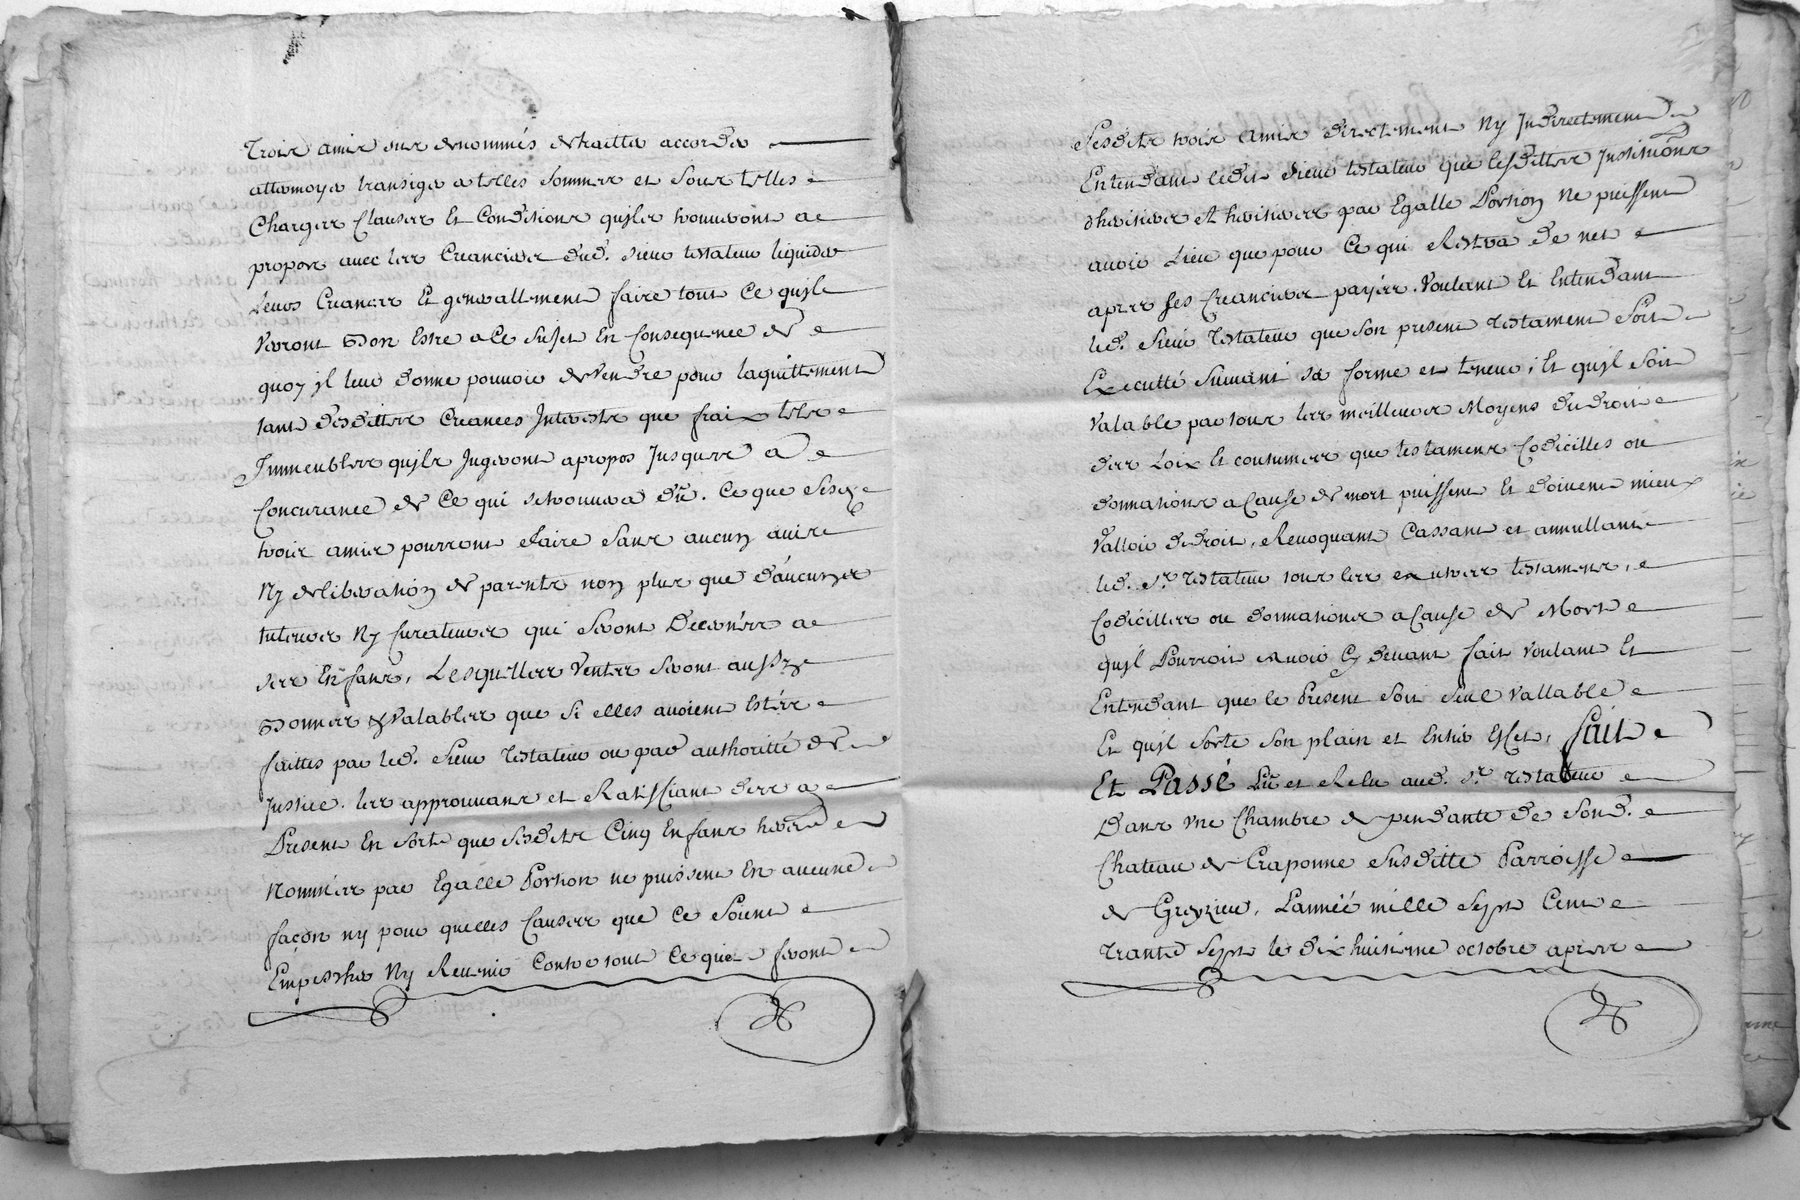 Trois amis sus denommés de traitter accorder
attermoyer transiger a telles sommes et sous telles
Charges Clauses Et Conditions quils trouveront a
propos avec les Creanciers dud. sieur testateur liquider
Leurs Creances Et generallement faire tout Ce quils
verront Bon Estre a Ce sujet En Consequence de
quoy jl leur donne pouvoir de vendre pour laquittement
tant desdittes Creances Interests que fraix tels
Immeubles quils Jugeront apropos Jusques a
Concurance de Ce qui se trouvera dû. Ce que sesd.
trois amis pourront faire sans aucun avis
Ny deliberation de parents non plus que d'aucuns
tuteurs Ny Curateurs qui seront Decernés a
ses Enfans, Lesquelles Ventes seront aussy
Bonnes & valables que si elles avoient Estés
faittes par led. sieur Testateur ou par authorité de
Justice. les approuvans et Ratiffiant des a
Present En sorte que sesdits Cinq Enfans heritiers
Nommés par Egalle Portion ne puissent En aucune
façon ny pour quelles Causes que Ce soient
Empescher Ny Revenir Contre tout Ce que feront
sesdits trois Amis directement Ny Indirectement
Entendant ledit sieur testateur que lesdittes Institutions
d'heritiers et heritieres par Egalle Portion Ne puissent
avoir Lieu que pour Ce qui Restera de net
apres ses Creanciers payés. Voulant Et Entendant
led. sieur Testateur que son present testament soit
Executté suivant sa forme et teneur; Et quil soit
Valable par tous les meilleurs Moyens du droit
des Loix Et coutumes que testamens Codicilles ou
donnations a Cause de mort puissent Et doivent mieux
Valloir de droit, Revoquant Cassant et annullant
led. sr. testateur tous les autres testamens,
Codicilles ou donnations a Cause de Mort
quil Pourroit avoir Cy devant fait voulant Et
Entendant que le Present soit seul vallable
Et quil sorte son plain et Entier Effet, fait
Et Passé Lû et Relu aud. sr. testateur
Dans une Chambre dependante de sond.
Chateau de Craponne susditte Parroisse
de Grezieu, L'année mille sept Cent
Trante sept le dix huitieme octobre apres